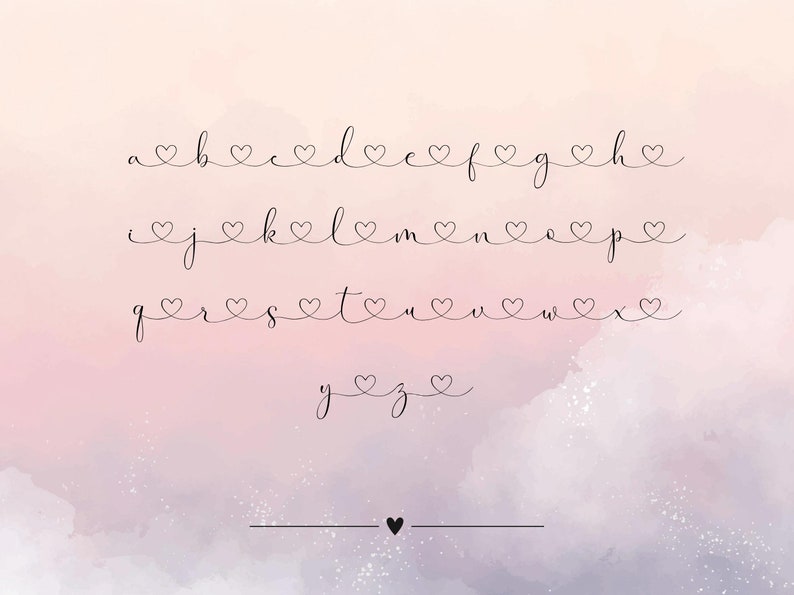 a♡b♡c♡d♡e♡f♡g♡h♡
i♡j♡k♡l♡m♡n♡o♡p♡
q♡r♡s♡t♡u♡v♡w♡x♡
y♡z♡